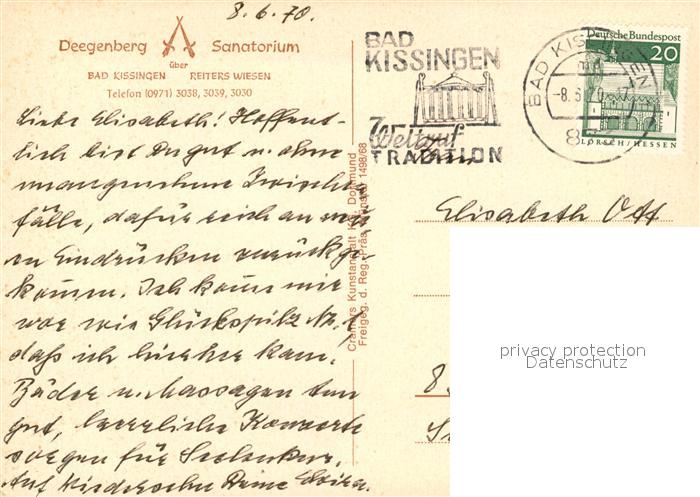 8.6.70.
Deegenberg Sanatorium
über
BAD KISSINGEN REITERS WIESEN
Telefon (0971) 3038, 3039, 3030
Liebe Elisabeth! Hoffent-
lich bist Du gut u. ohne
unangenehme Zwischen
fälle, dafür reich an
Eindrücken zurückge-
kommen. Ich komme mir
vor wie Glückspilz Nr. 1,
daß ich hierher kam.
Bäder u. Massagen tun
gut, herrliche Konzerte
sorgen für
Auf Wiedersehn Deine
Cramers Kunstanstalt KG, Dortmund
Freigeg. d. Reg. Präs. 1498/68
BAD
KISSINGEN
Weltruf
TRADITION
BAD KISSINGEN
-8.6.70.-17
8
Deutsche Bundespost
20
LORSCH/HESSEN
Elisabeth Ott
8
privacy protection
Datenschutz